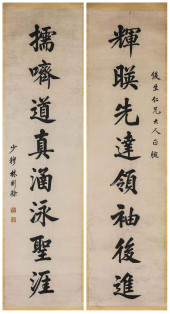 俊生仁兄大人正腕
輝暎先達領袖後進
擩嚌道真涵泳聖涯
少穆林則徐